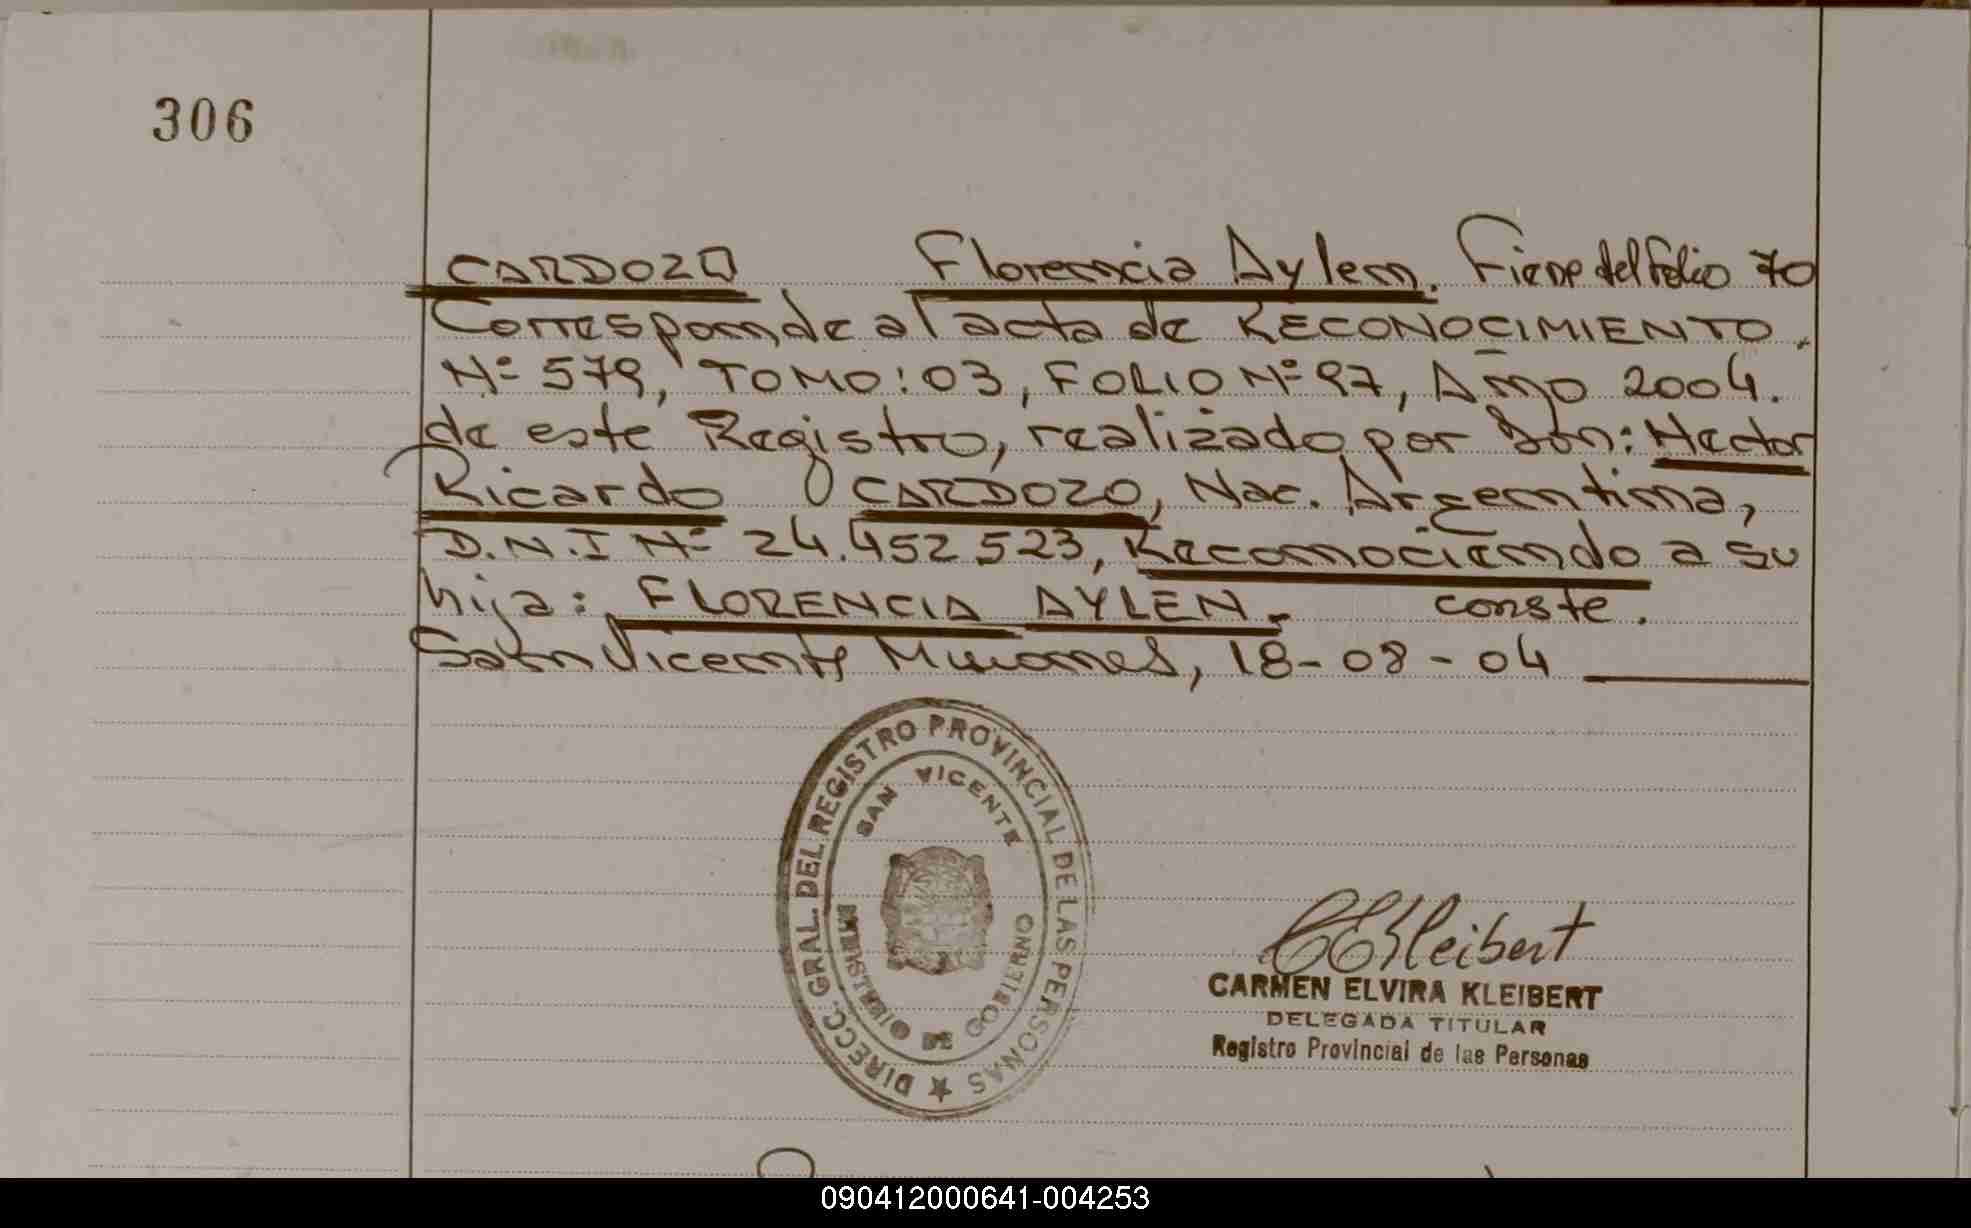 306
CARDOZO Florencia Aylen. Viene del folio 70
Corresponde al acta de RECONOCIMIENTO.
Nº 579, TOMO: 03, FOLIO Nº 97, Año 2004.
de este Registro, realizado por Don: Hector
Ricardo CARDOZO, Nac. Argentina,
D.N.I Nº 24.452523, Reconociendo a su
hija: FLORENCIA AYLEN.- conste.
San Vicente Misiones, 18-08-04
DIRECC. GRAL. DEL REGISTRO PROVINCIAL DE LAS PERSONAS
SAN VICENTE
MINISTERIO DE GOBIERNO
CEKleibert
CARMEN ELVIRA KLEIBERT
DELEGADA TITULAR
Registro Provincial de las Personas
090412000641-004253